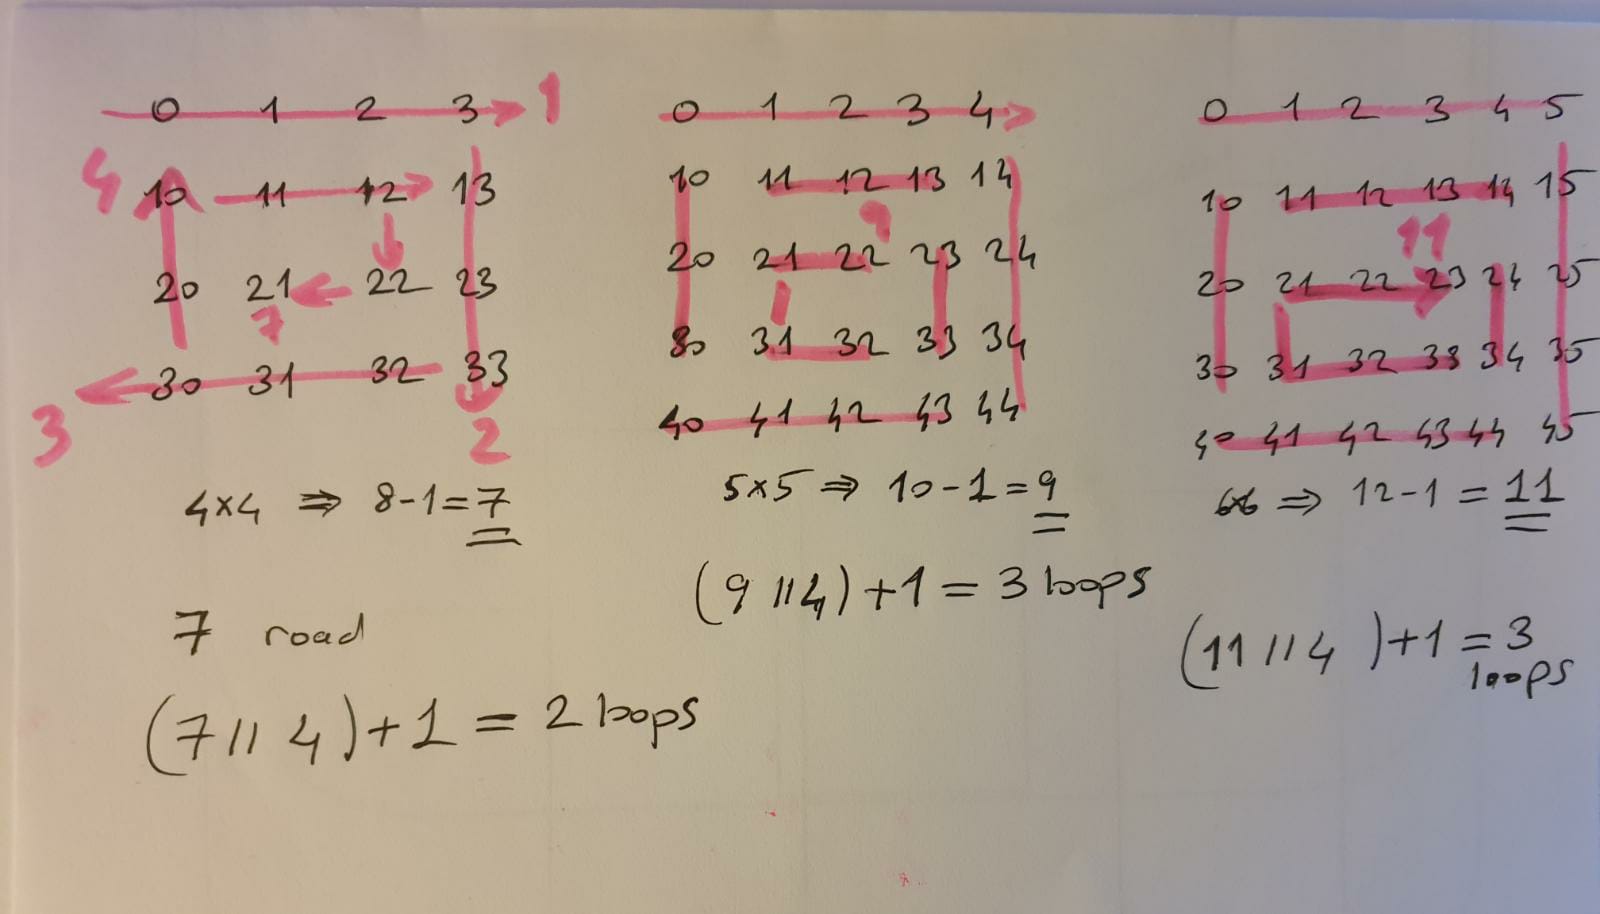 0 1 2 3 1
4 10 11 12 13
20 21 22 23
7
30 31 32 33
3 2
4x4 ⇒ 8-1=7
7 road
(7 // 4)+1 = 2 loops
0 1 2 3 4
10 11 12 13 14
9
20 21 22 23 24
30 31 32 33 34
40 41 42 43 44
5x5 ⇒ 10-1=9
(9 // 4)+1 = 3 loops
0 1 2 3 4 5
10 11 12 13 14 15
11
20 21 22 23 24 25
30 31 32 33 34 35
40 41 42 43 44 45
6x6 ⇒ 12-1 = 11
(11 // 4)+1 = 3
loops